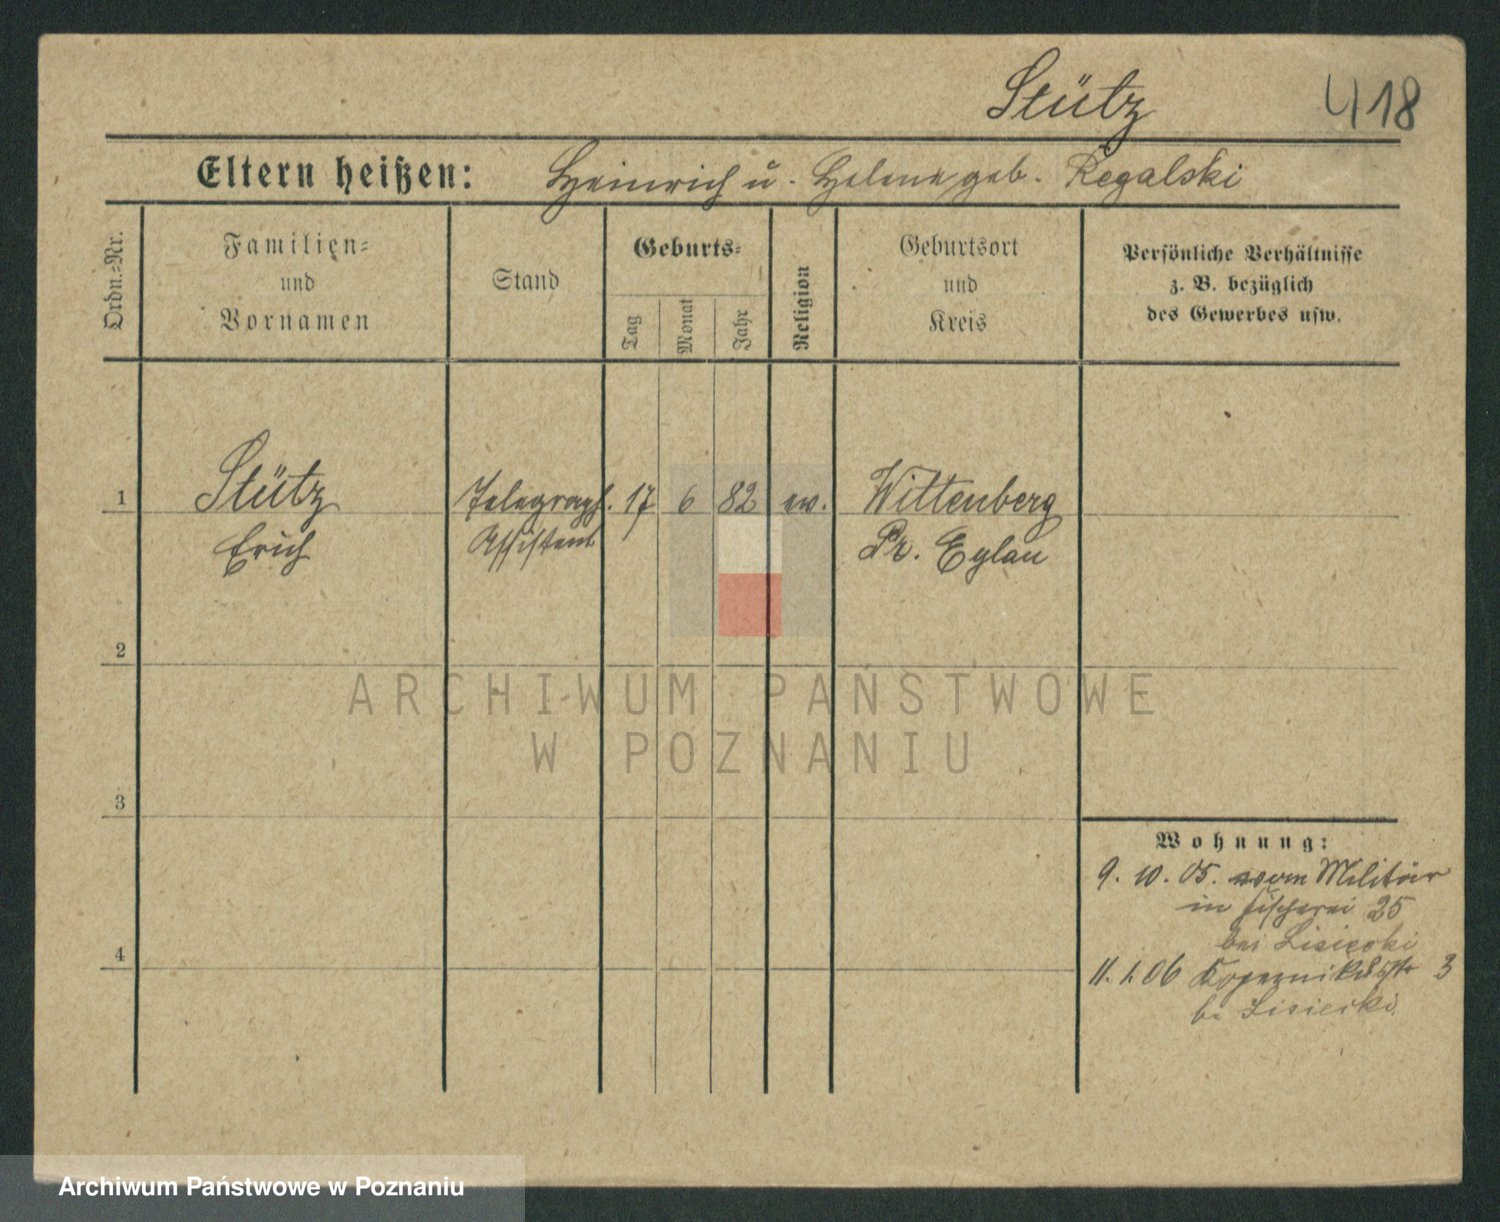 Stütz
418
Eltern heißen: Heinrich u. Helene geb. Regalski
Ordn.=Nr.
Familien=
und
Vornamen
Stand
Geburts=
Tag
Monat
Jahr
Religion
Geburtsort
und
Kreis
Persönliche Verhältnisse
z. B. bezüglich
des Gewerbes usw.
1 Stütz Telegraph. 17 6 82 ev. Wittenberg
Erich Assistent Pr. Eylau
2
3
4
Wohnung:
9. 10. 05. vom Militär
in Fischerei 25
bei Lisiecki
11. 1. 06 Kopernikusstr 3
bei Lisiecki
ARCHIWUM PAŃSTWOWE
W POZNANIU
Archiwum Państwowe w Poznaniu